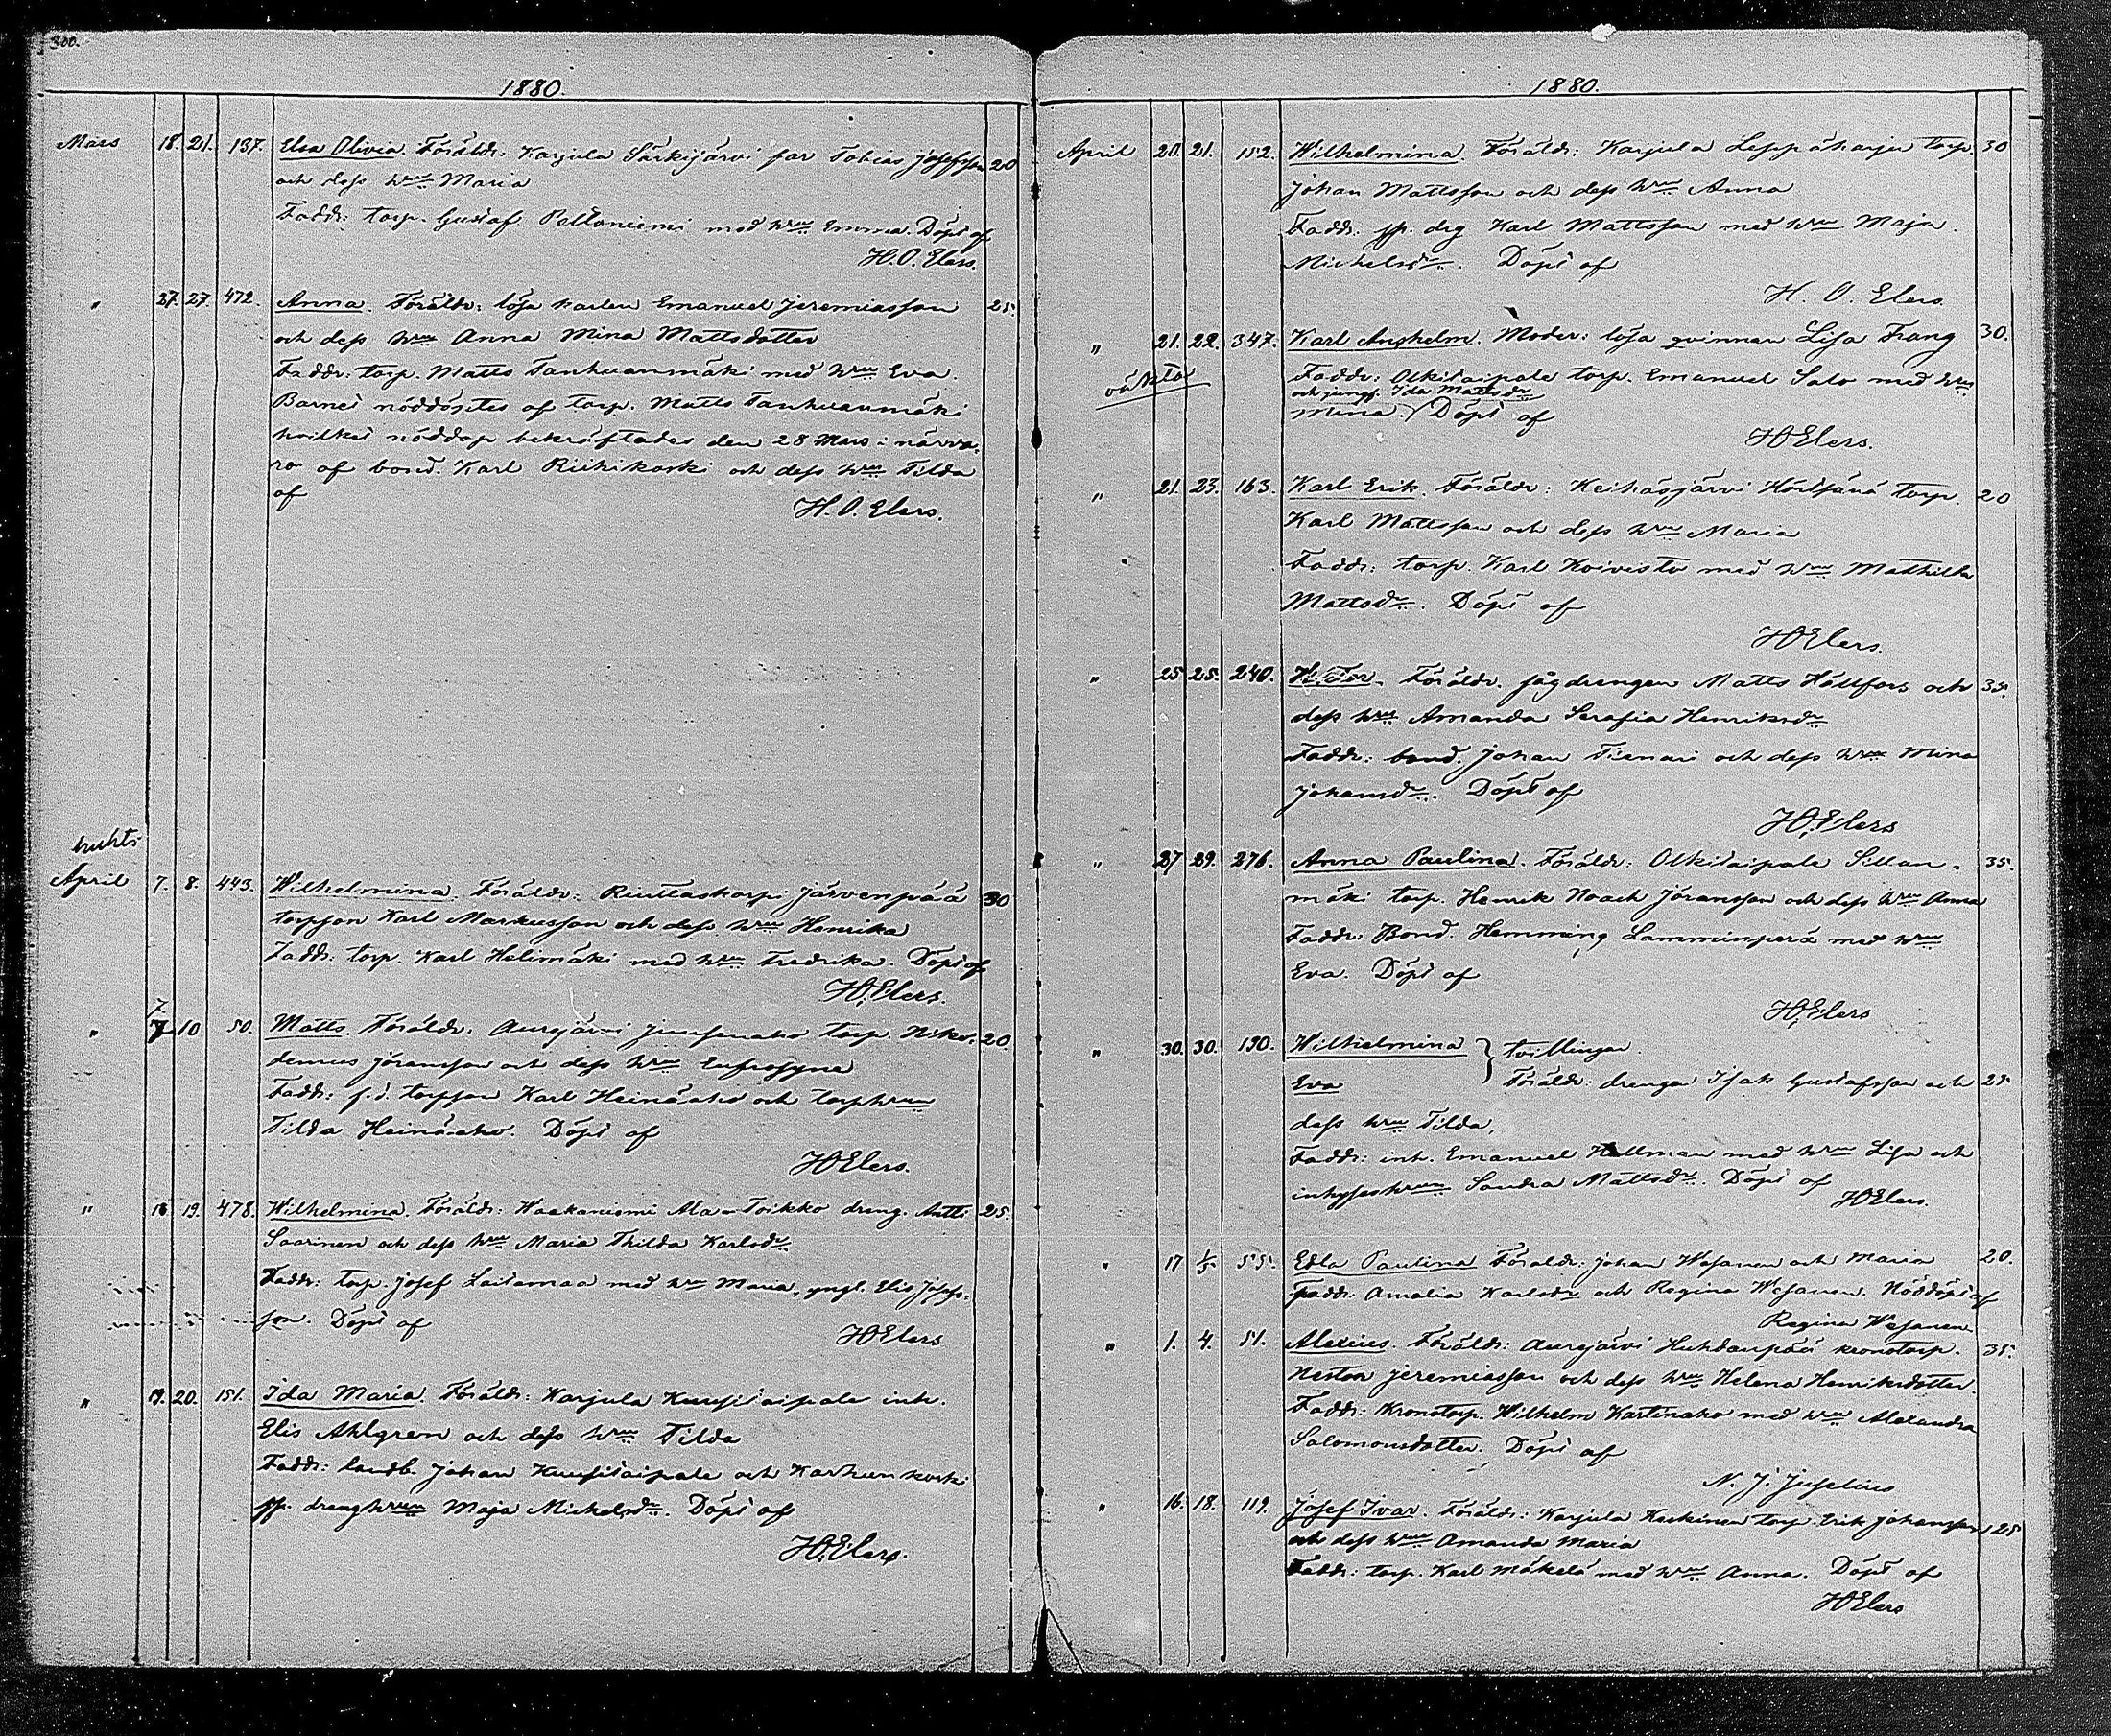 300.
1880.
Mars 18. 21. 137. Elsa Olivia. Föräldr: Karjula Särkijärvi far Tobias Josefsson 20
och dess hru Maria
Faddr: torp. Gustaf Peltoniemi med hru Emma. Döpt af
H. O. Elers.
" 27. 27. 472. Anna. Föräldr: lösa karlen Emanuel Jeremiasson 25.
och dess hru Anna Mina Mattsdotter
Faddr: torp. Matts Tanhuanmäki med hru Eva.
Barnet nöddöptes af torp. Matts Tanhuanmäki
hvilket nöddop bekräftades den 28 Mars i närva-
ro af bond. Karl Riihikoski och dess hru Tilda
af
H. O. Elers.
huhti
April 7. 8. 443. Wilhelmina. Föräldr: Riuttaskorpi Järvenpää 30
torpson Karl Markusson och dess hru Henrika
Faddr: torp. Karl Helimäki med hru Fredrika. Döpt af
HOElers.
7.
" 7 10 50. Matts. Föräldr: Aurejärvi Juusenaho torp. Niko- 20.
demus Jöransson och dess hru Eufrosyne
Faddr: f.d. torpson Karl Heinäaho och torphrun
Tilda Heinäaho. Döpt af
HOElers.
" 18 19. 478. Wilhelmina. Föräldr: Haakaniemi Ala-Toikko dreng. Antti 25.
Saarinen och dess hru Maria Thilda Karlsdr
Faddr: torp. Josef Laitamaa med hru Maria, yngl. Elis Josefs-
son. Döpt af
HOElers
" 19. 20. 151. Ida Maria. Föräldr: Karjula Kuusitaipale inh.
Elis Ahlgren och dess hru Tilda
Faddr: landb. Johan Kuusitaipale och Karhunkoski
sp. drenghrun Maja Michelsdr. Döpt af
HOElers.
1880.
April 20. 21. 152. Wilhelmina. Föräldr: Karjula Leppäharju torp. 30
Johan Mattsson och dess hru Anna
Faddr: sp. drg Karl Mattsson med hru Maja
Michelsdr. Döpt af
H. O. Elers
" 21. 22. 347. Karl Anshelm. Moder: lösa qvinnan Lisa Frang 30.
oäkta Faddr: Olkitaipale torp. Emanuel Salo med hru
och jungf. Ida Mattsdr
Mina. / Döpt af
HOElers.
" 21. 23. 163. Karl Erik. Föräldr: Keihäsjärvi torp. 20
Karl Mattsson och dess hru Maria
Faddr: torp. Karl Koivisto med hru Mathilda
Mattsdr. Döpt af
HOElers.
" 25 25. 240. Föräldr. sågdrengen Matts Hällfors och 35.
dess hru Amanda Serafia Henriksdr
Faddr: bond. Johan Tienari och dess hru Mina
Johansdr. Döpt af
HOElers
" 27 29. 276. Anna Paulina. Föräldr: Olkitaipale Sillan- 35.
mäki torp. Henrik Noach Jöransson och dess hru Anna
Faddr: Bond. Hemming Lamminperä med hru
Eva. Döpt af
HOElers
" 30. 30. 190. Wilhelmina } tvillingar.
Eva Föräldr: drengen Isak Gustafsson och 25
dess hru Tilda,
Faddr: inh. Emanuel Hellman med hru Lisa och
inhyseshrun Sandra Mattsdr. Döpt af
HOElers.
" 17 1/5 55. Edla Paulina Föräldr: Johan Wesanen och Maria 20.
Faddr. Amalia Karlsdr och Regina Wesanen. Nöddöpt af
Regina Wesanen
" 1. 4. 51. Alexius. Föräldr: Aurejärvi Huhdanpää kronotorp. 35.
Nestor Jeremiasson och dess hru Helena Henriksdotter.
Faddr: Kronotorp. Wilhelm Kartinaho med hru Alexandra
Salomonsdotter. Döpt af
N. J. Juselius
" 16. 18. 119. Josef Ivar. Föräldr: Karjula Keskinen torp. Erik Johansson 25
och dess hru Amanda Maria
Faddr: torp. Karl Mäkelä med hru Anna. Döpt af
HOElers